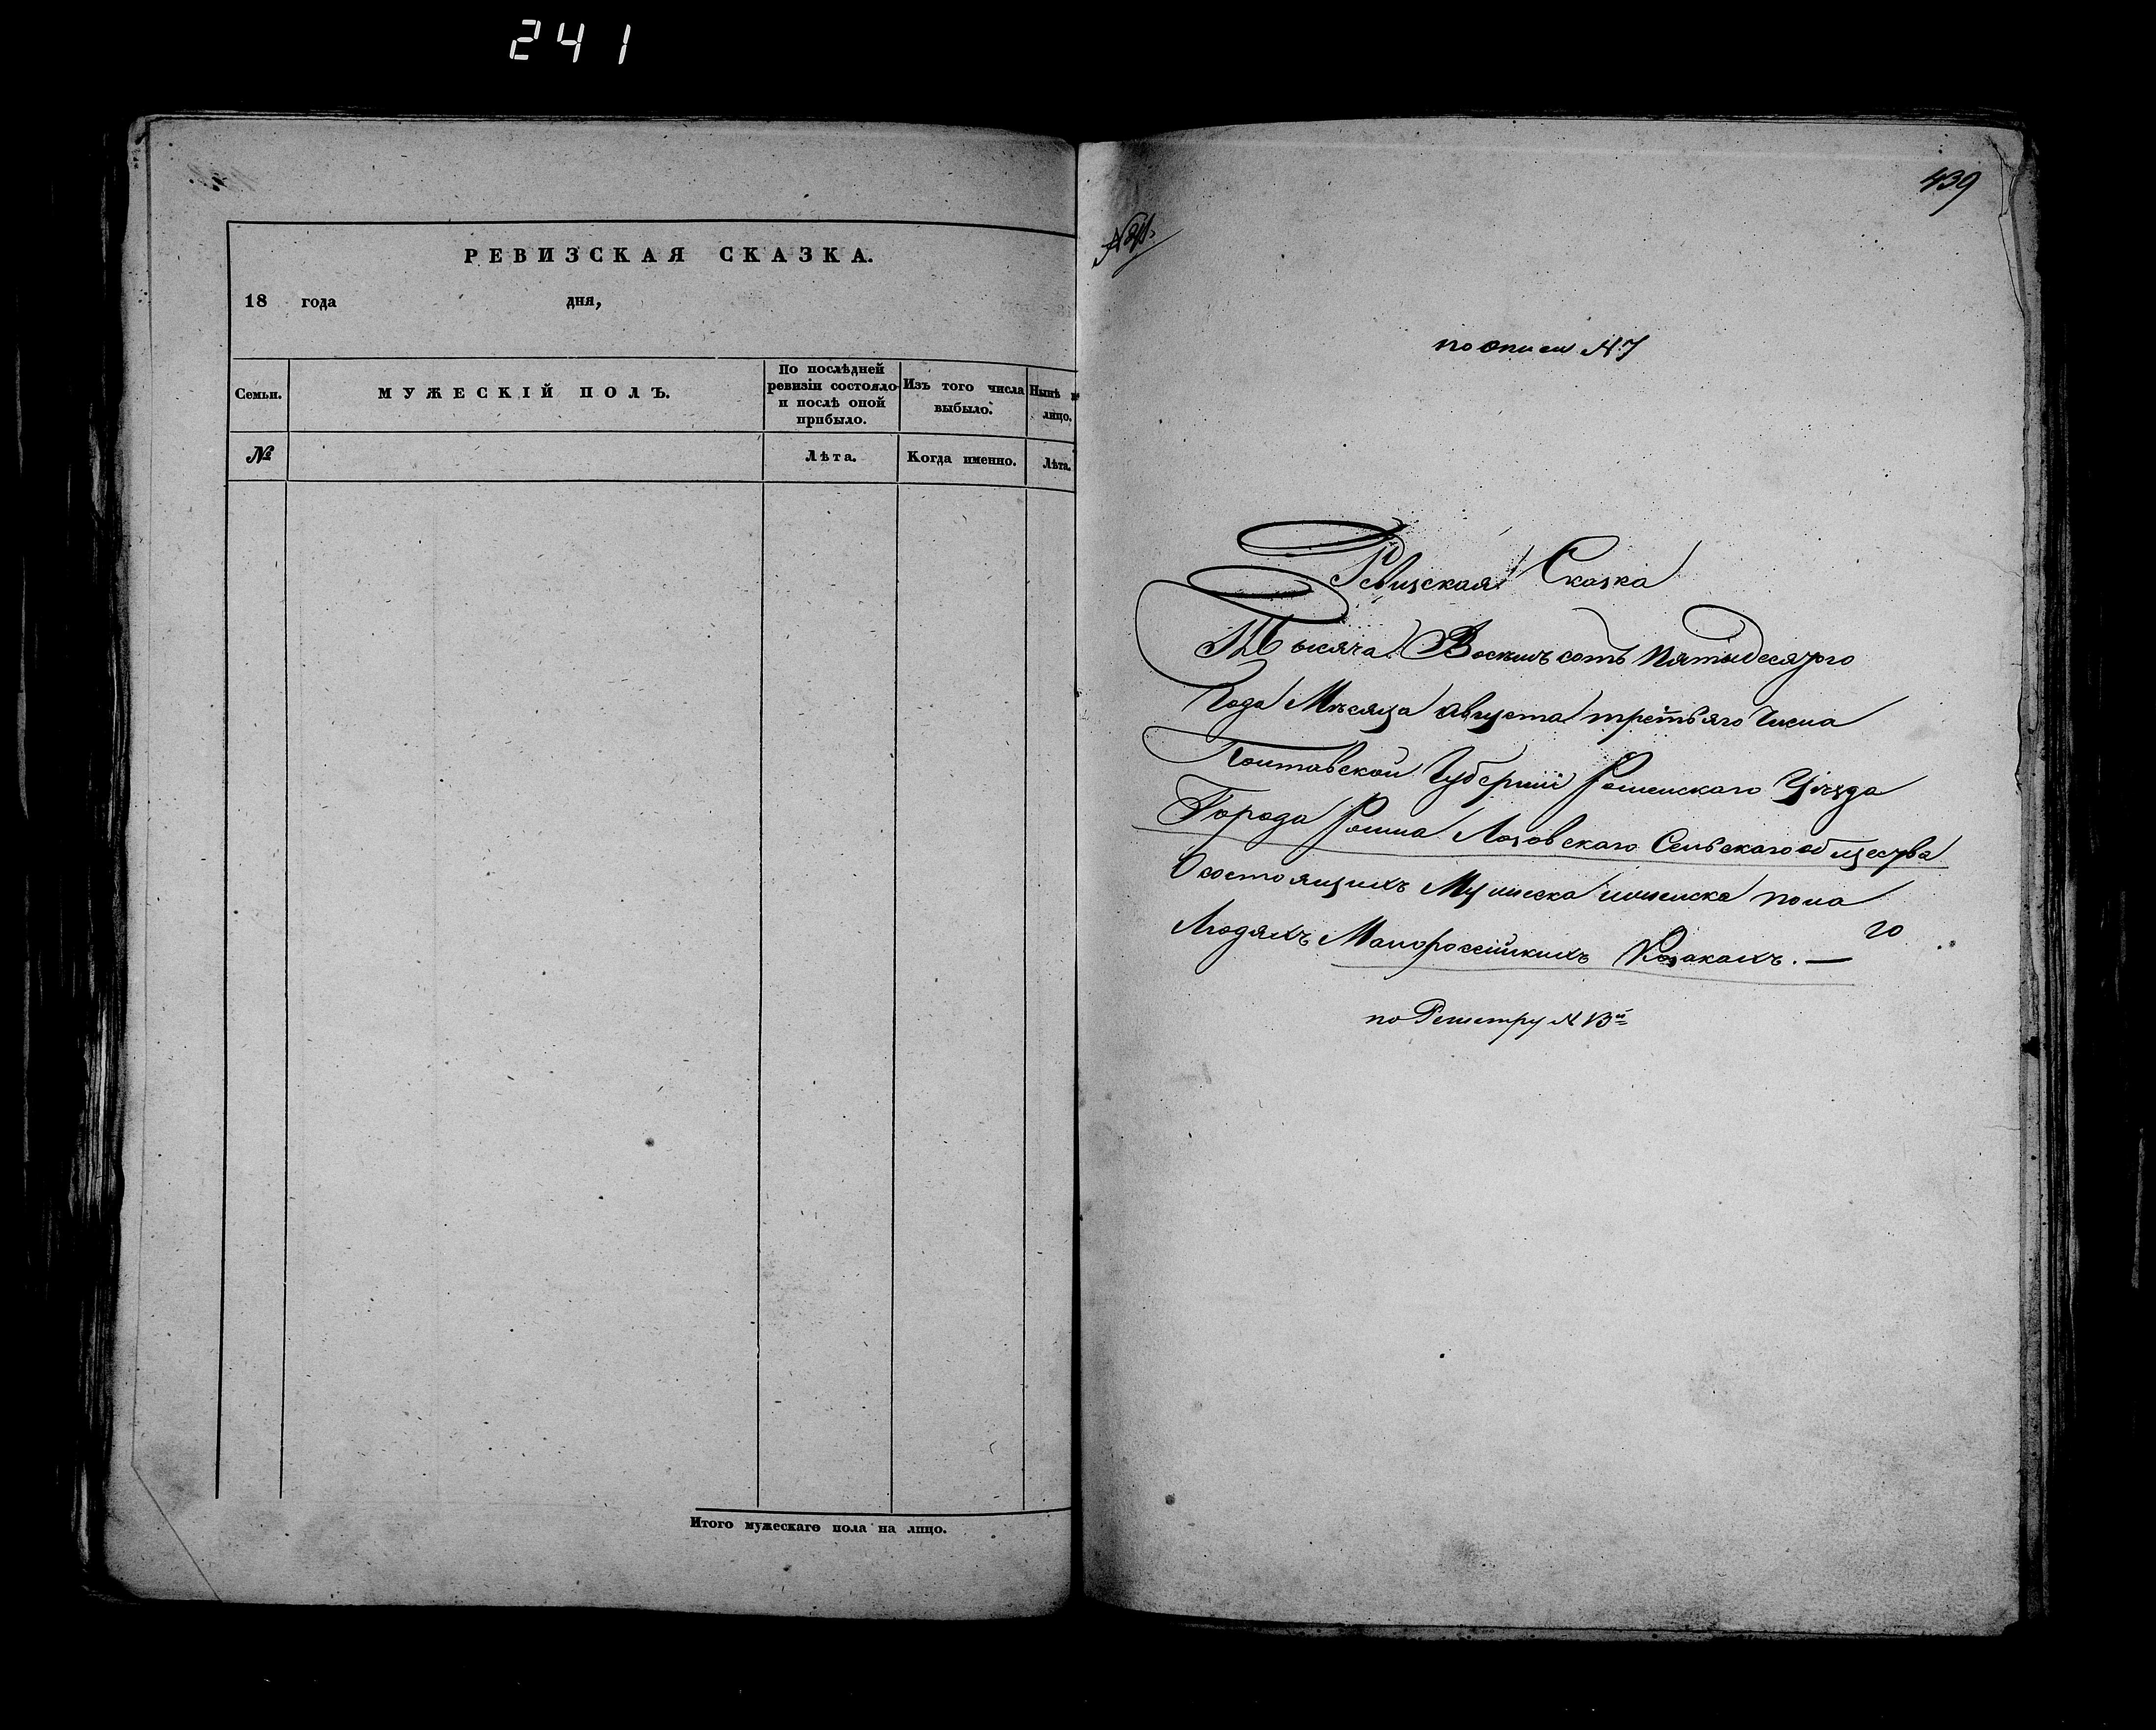 241
РЕВИЗСКАЯ СКАЗКА.
18 года дня,
Семьи.
МУЖЕСКІЙ ПОЛЪ.
По послѣдней
ревизіи состояло
и послѣ оной
прибыло.
Изъ того числа
выбыло.
Нынѣ на
лицо.
№
Лѣта.
Когда именно.
Лѣта.
Итого мужескаго пола на лицо.
439
по описи №7
Ревизская Сказка
Тысяча Восемь сотъ пятидесятого
Года Мѣсяца августа третьяго Числа
Полтавской Губерніи Роменскаго Уѣзда
Города Ромна Лозовскаго Сельскаго общества
О состоящихъ Мужеска и женска пола
Людяхъ Малороссійскихъ Козакахъ. —
20
по Регистру № 13й